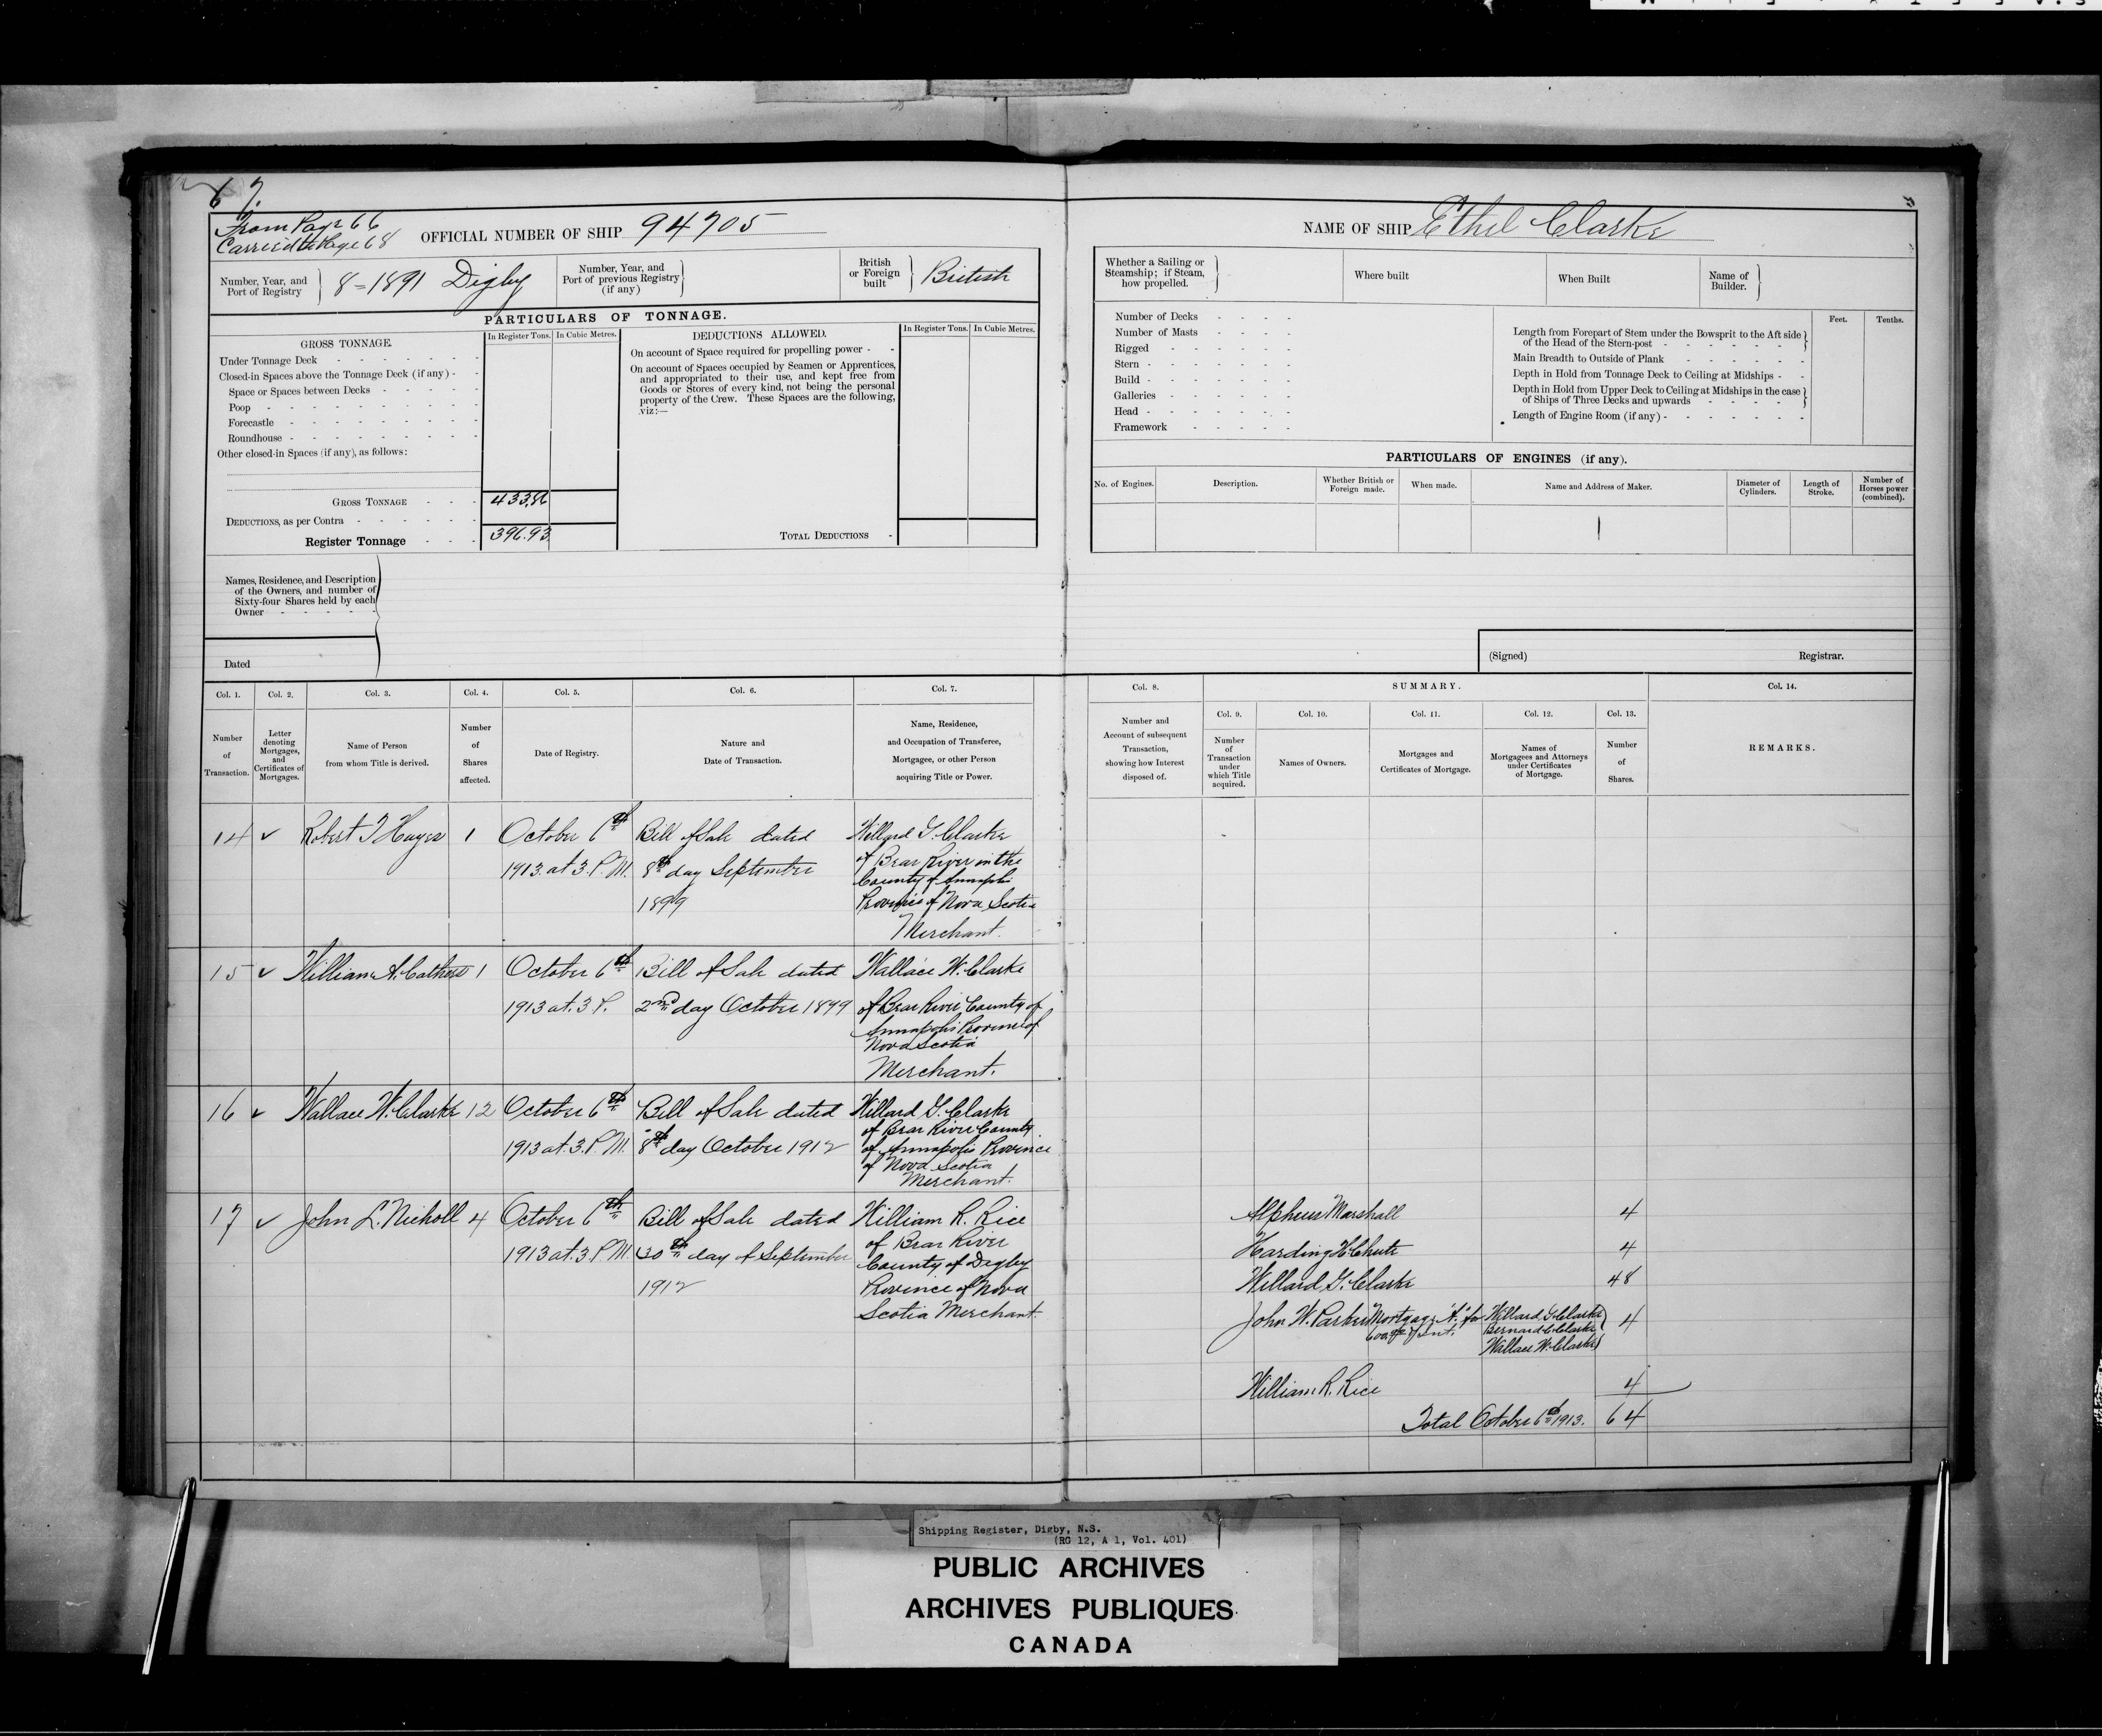 67.
From Page 66
Carried to Page 68
OFFICIAL NUMBER OF SHIP 94705
Number, Year, and Port of Registry
8=1891 Digby
Number, Year, and Port of previous Registry (if any)
British or Foreign built
British
PARTICULARS OF TONNAGE.
GROSS TONNAGE.
In Register Tons.
In Cubic Metres.
Under Tonnage Deck
Closed-in Spaces above the Tonnage Deck (if any)
Space or Spaces between Decks
Poop
Forecastle
Roundhouse
Other closed-in Spaces (if any), as follows:
GROSS TONNAGE
DEDUCTIONS, as per Contra
Register Tonnage 396.93
DEDUCTIONS ALLOWED.
In Register Tons.
In Cubic Metres.
On account of Space required for propelling power
On account of Spaces occupied by Seamen or Apprentices,
and appropriated to their use, and kept free from
Goods or Stores of every kind, not being the personal
property of the Crew. These Spaces are the following,
viz:—
TOTAL DEDUCTIONS
Names, Residence, and Description
of the Owners, and number of
Sixty-four Shares held by each
Owner
Dated
NAME OF SHIP Ethel Clarke
Whether a Sailing or
Steamship; if Steam,
how propelled.
Where built
When Built
Name of
Builder.
Number of Decks
Number of Masts
Rigged
Stern
Build
Galleries
Head
Framework
Feet.
Tenths.
Length from Forepart of Stem under the Bowsprit to the Aft side
of the Head of the Stern-post
Main Breadth to Outside of Plank
Depth in Hold from Tonnage Deck to Ceiling at Midships
Depth in Hold from Upper Deck to Ceiling at Midships in the case
of Ships of Three Decks and upwards
Length of Engine Room (if any)
PARTICULARS OF ENGINES (if any).
No. of Engines.
Description.
Whether British or
Foreign made.
When made.
Name and Address of Maker.
Diameter of
Cylinders.
Length of
Stroke.
Number of
Horses power
(combined).
(Signed)
Registrar.
Col. 1.
Col. 2.
Col. 3.
Col. 4.
Col. 5.
Col. 6.
Col. 7.
Number
of
Transaction.
Letter
denoting
Mortgages,
and
Certificates of
Mortgages.
Name of Person
from whom Title is derived.
Number
of
Shares
affected.
Date of Registry.
Nature and
Date of Transaction.
Name, Residence,
and Occupation of Transferee,
Mortgagee, or other Person
acquiring Title or Power.
Col. 8.
SUMMARY.
Col. 14.
Col. 9.
Col. 10.
Col. 11.
Col. 12.
Col. 13.
Number and
Account of subsequent
Transaction,
showing how Interest
disposed of.
Number
of
Transaction
under
which Title
acquired.
Names of Owners.
Mortgages and
Certificates of Mortgage.
Names of
Mortgagees and Attorneys
under Certificates
of Mortgage.
Number
of
Shares.
REMARKS.
14 ✓ Robert 1
October 6th
1913. at 3. P.M.
Bill of Sale dated
8th day September
1899
Willard G. Clarke
of Bear River in the
County of Annapolis
Province of Nova Scotia
Merchant.
15 ✓ William A. 1
October 6th
1913 at. 3 P.
Bill of Sale dated
2nd day October 1899
Wallace W. Clarke
of Bear River County of
Annapolis Province of
Nova Scotia
Merchant.
16 ✓ Wallace W. Clarke 12
October 6th
1913 at. 3. P.M.
Bill of Sale dated
8th day October 1912
Willard G. Clarke
of Bear River County
of Annapolis Province
of Nova Scotia
Merchant.
17 ✓ John L. Nicholl 4
October 6th
1913 at. 3 P.M.
Bill of Sale dated
30th day of September
1912
William R. Rice
of Bear River
County of Digby
Province of Nova
Scotia Merchant.
Alpheus Marshall 4
Harding H. Chute 4
Willard G. Clarke 48
John W. Parker Mortgage "A" for Willard G. Clarke 4
Bernard C. Clarke
Wallace W. Clarke
William R. Rice 4
Total October 6th 1913. 64
Shipping Register, Digby, N.S.
(RG 12, A 1, Vol. 401)
PUBLIC ARCHIVES
ARCHIVES PUBLIQUES
CANADA